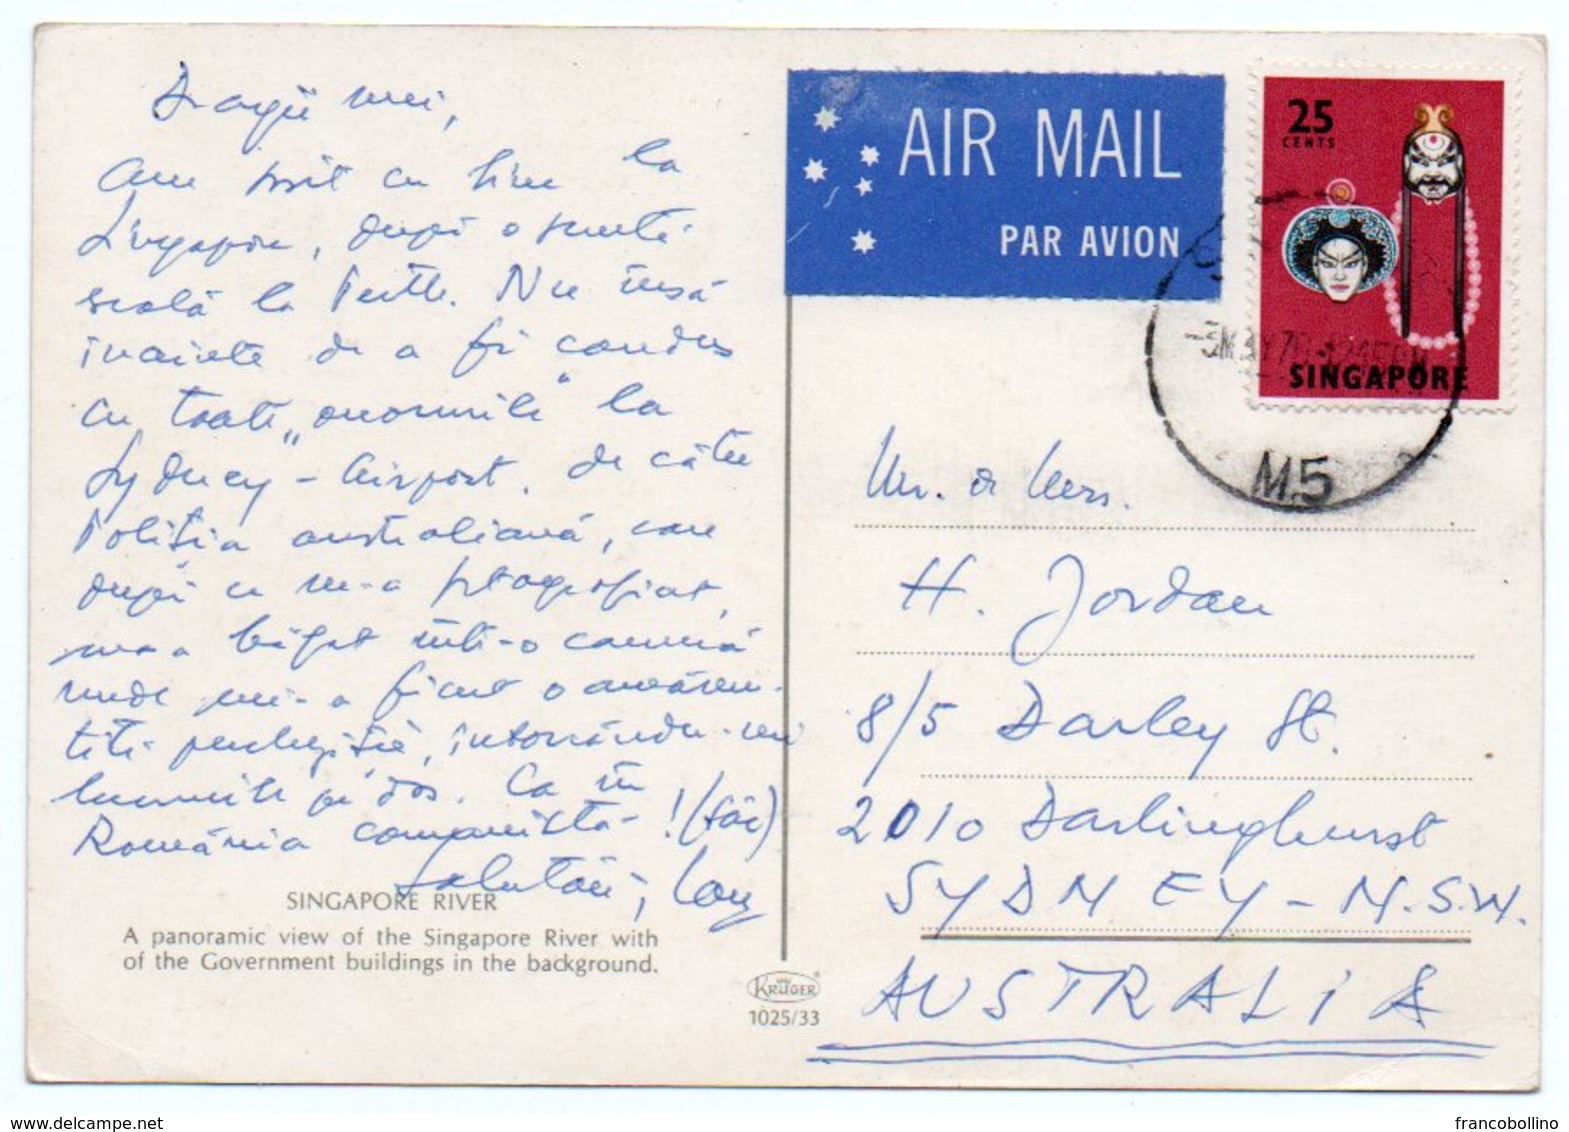 Dragii mei,
Am sosit cu bine la
Singapore, după o scurtă
scală la Perth. Nu însă
înainte de a fi condus
cu toate „onorurile" la
Sydney - Airport, de către
Poliția australiană, care
după ce m-a fotografiat,
m-a băgat într-o cameră
unde mi-a făcut o amănun-
țită percheziție, întorcându-mi
hainele pe dos. Ca în
România comunistă! (făi)
Salutări,
SINGAPORE RIVER
A panoramic view of the Singapore River with
of the Government buildings in the background.
KRÜGER
1025/33
AIR MAIL
PAR AVION
25
CENTS
SINGAPORE
M5
Mr. & Mrs.
H. Jordan
8/5 Darley St.
2010 Darlinghurst
SYDNEY - N.S.W.
AUSTRALIA
www.delcampe.net
francobollino